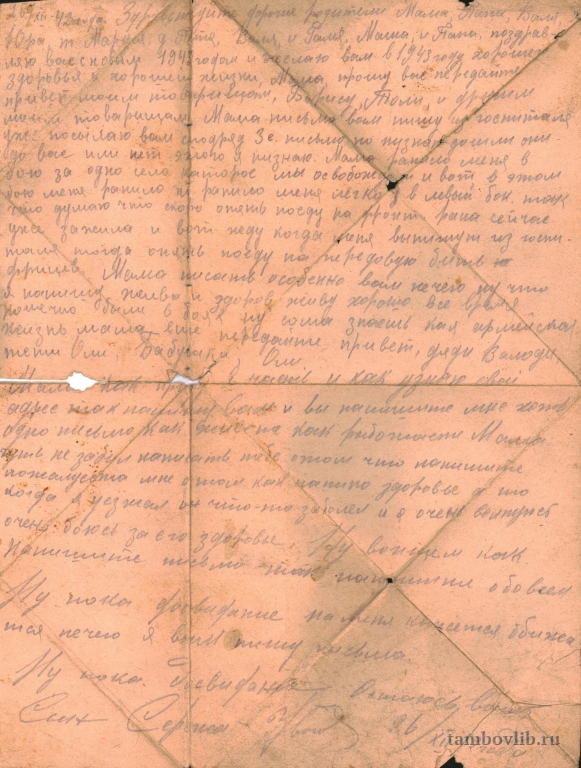 26/XII-42 года Здравствуйте дорогие родители Мама, Папа, Валя,
Юра т. Маруся д. Петя, Валя, и Галя, Маша, и Папа, поздрав-
ляю вас с новым 1943 годом и желаю вам в 1943 году хорошего
здоровья и хорошей жизни, Мама прошу вас передайте
привет моим товарищам, Борису, Толи, и другим
моим товарищам. Мама письмо вам пишу из госпиталя
уже посылаю вам сподряд 3е. письмо но низнаю дошли они
до вас или нет этого я низнаю. Мама ранило меня в
бою за одно село которое мы освобождали и вот в этом
бою меня ранило но ранило меня легко в левый бок. так
что думаю что скоро опять поеду на фронт рана сейчас
уже зажила и вот жду когда меня выпишут из госпи-
таля тогда опять поеду на передовую бить
фрицев. Мама писать особенно вам нечего ну что
я напишу живой и здоров живу хорошо все время
конечно были в боях ну сама знаешь как армейская
жизнь мама еще передайте привет, дяди Володи
тети Оли, Бабушки Оли
Мама как части и как узнаю свой
адрес так напишу вам и вы напишите мне хоть
одно письмо как работаете Мама
чуть не забыл написать тебе о том что напишите
пожалуйста мне о том как папино здоровье а то
когда я уезжал он что-то заболел и я очень
очень боюсь за его здоровье Ну вопщем как
Напишите письмо так напишите обо всем
Ну пока досвидание на меня кажется обижа
тся нечего я вам пишу письма.
Ну пока. Досвидание Остаюсь Ваш
Сын Сергей 26
tambovlib.ru